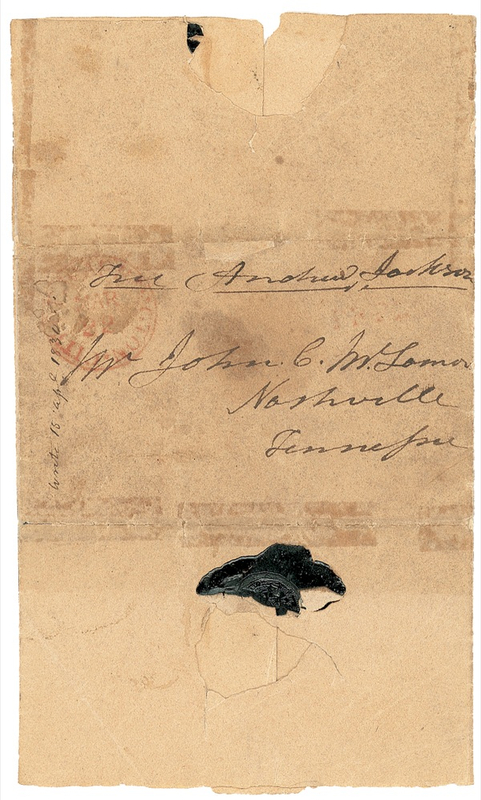 Free Andrew Jackson
Mr John C. McLemor
Nashville
Tennessee
MAR